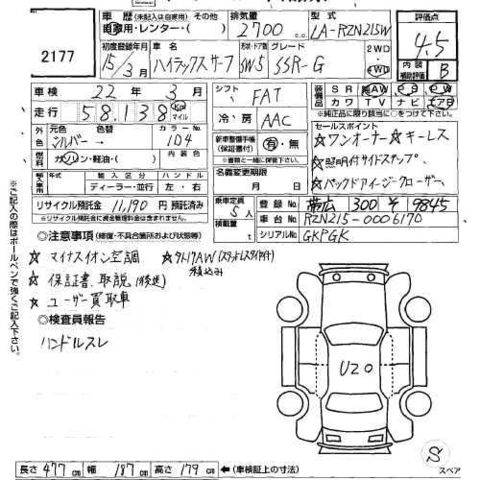 2177
車歴 (未記入は自家用) その他
自家用・レンター・( )
排気量
2700
型式
LA-RZN215W
評価点
4.5
初度登録年月
15/3月
車名
ハイラックスサーフ
形状・ドア数
SW5
グレード
SSR-G
2WD
4WD
内装
補助評価
B
車検 22年3月
走行 58,138 Km マイル
シフト
FAT
冷房
AAC
AW
カワ TV ナビ エアB
元色
シルバー
色替
→
カラーNo
1D4
燃料
ガソリン・軽油・( )
新車整備手帳(保証書)
有・無
セールスポイント
☆ワンオーナー☆キーレス
☆照明付サイドステップ
☆バックドアイージークローザー
輸入車
ディーラー・並行
ハンドル
左・右
名義変更期限
月 日
リサイクル預託金 11,190 円 預託済み
※リサイクル預託金に資金管理料金は含まれます。
乗車定員
5人
積載量
登録 No 帯広 300 そ 9845
車台 No RZN215-0006170
シリアルNo GKPGK
◎注意事項 (修復・不具合箇所および状態等)
☆ マイナスイオン空調
☆社外17AW(スタッドレスタイヤ付)積込み
☆ 保証書、取説 (後送)
☆ ユーザー買取車
◎検査員報告
ハンドルスレ
U20
S
スペア
長さ 477cm 幅 187cm 高さ 179cm (車検証上の寸法)
※ご記入の際はボールペンで強くご記入下さい。